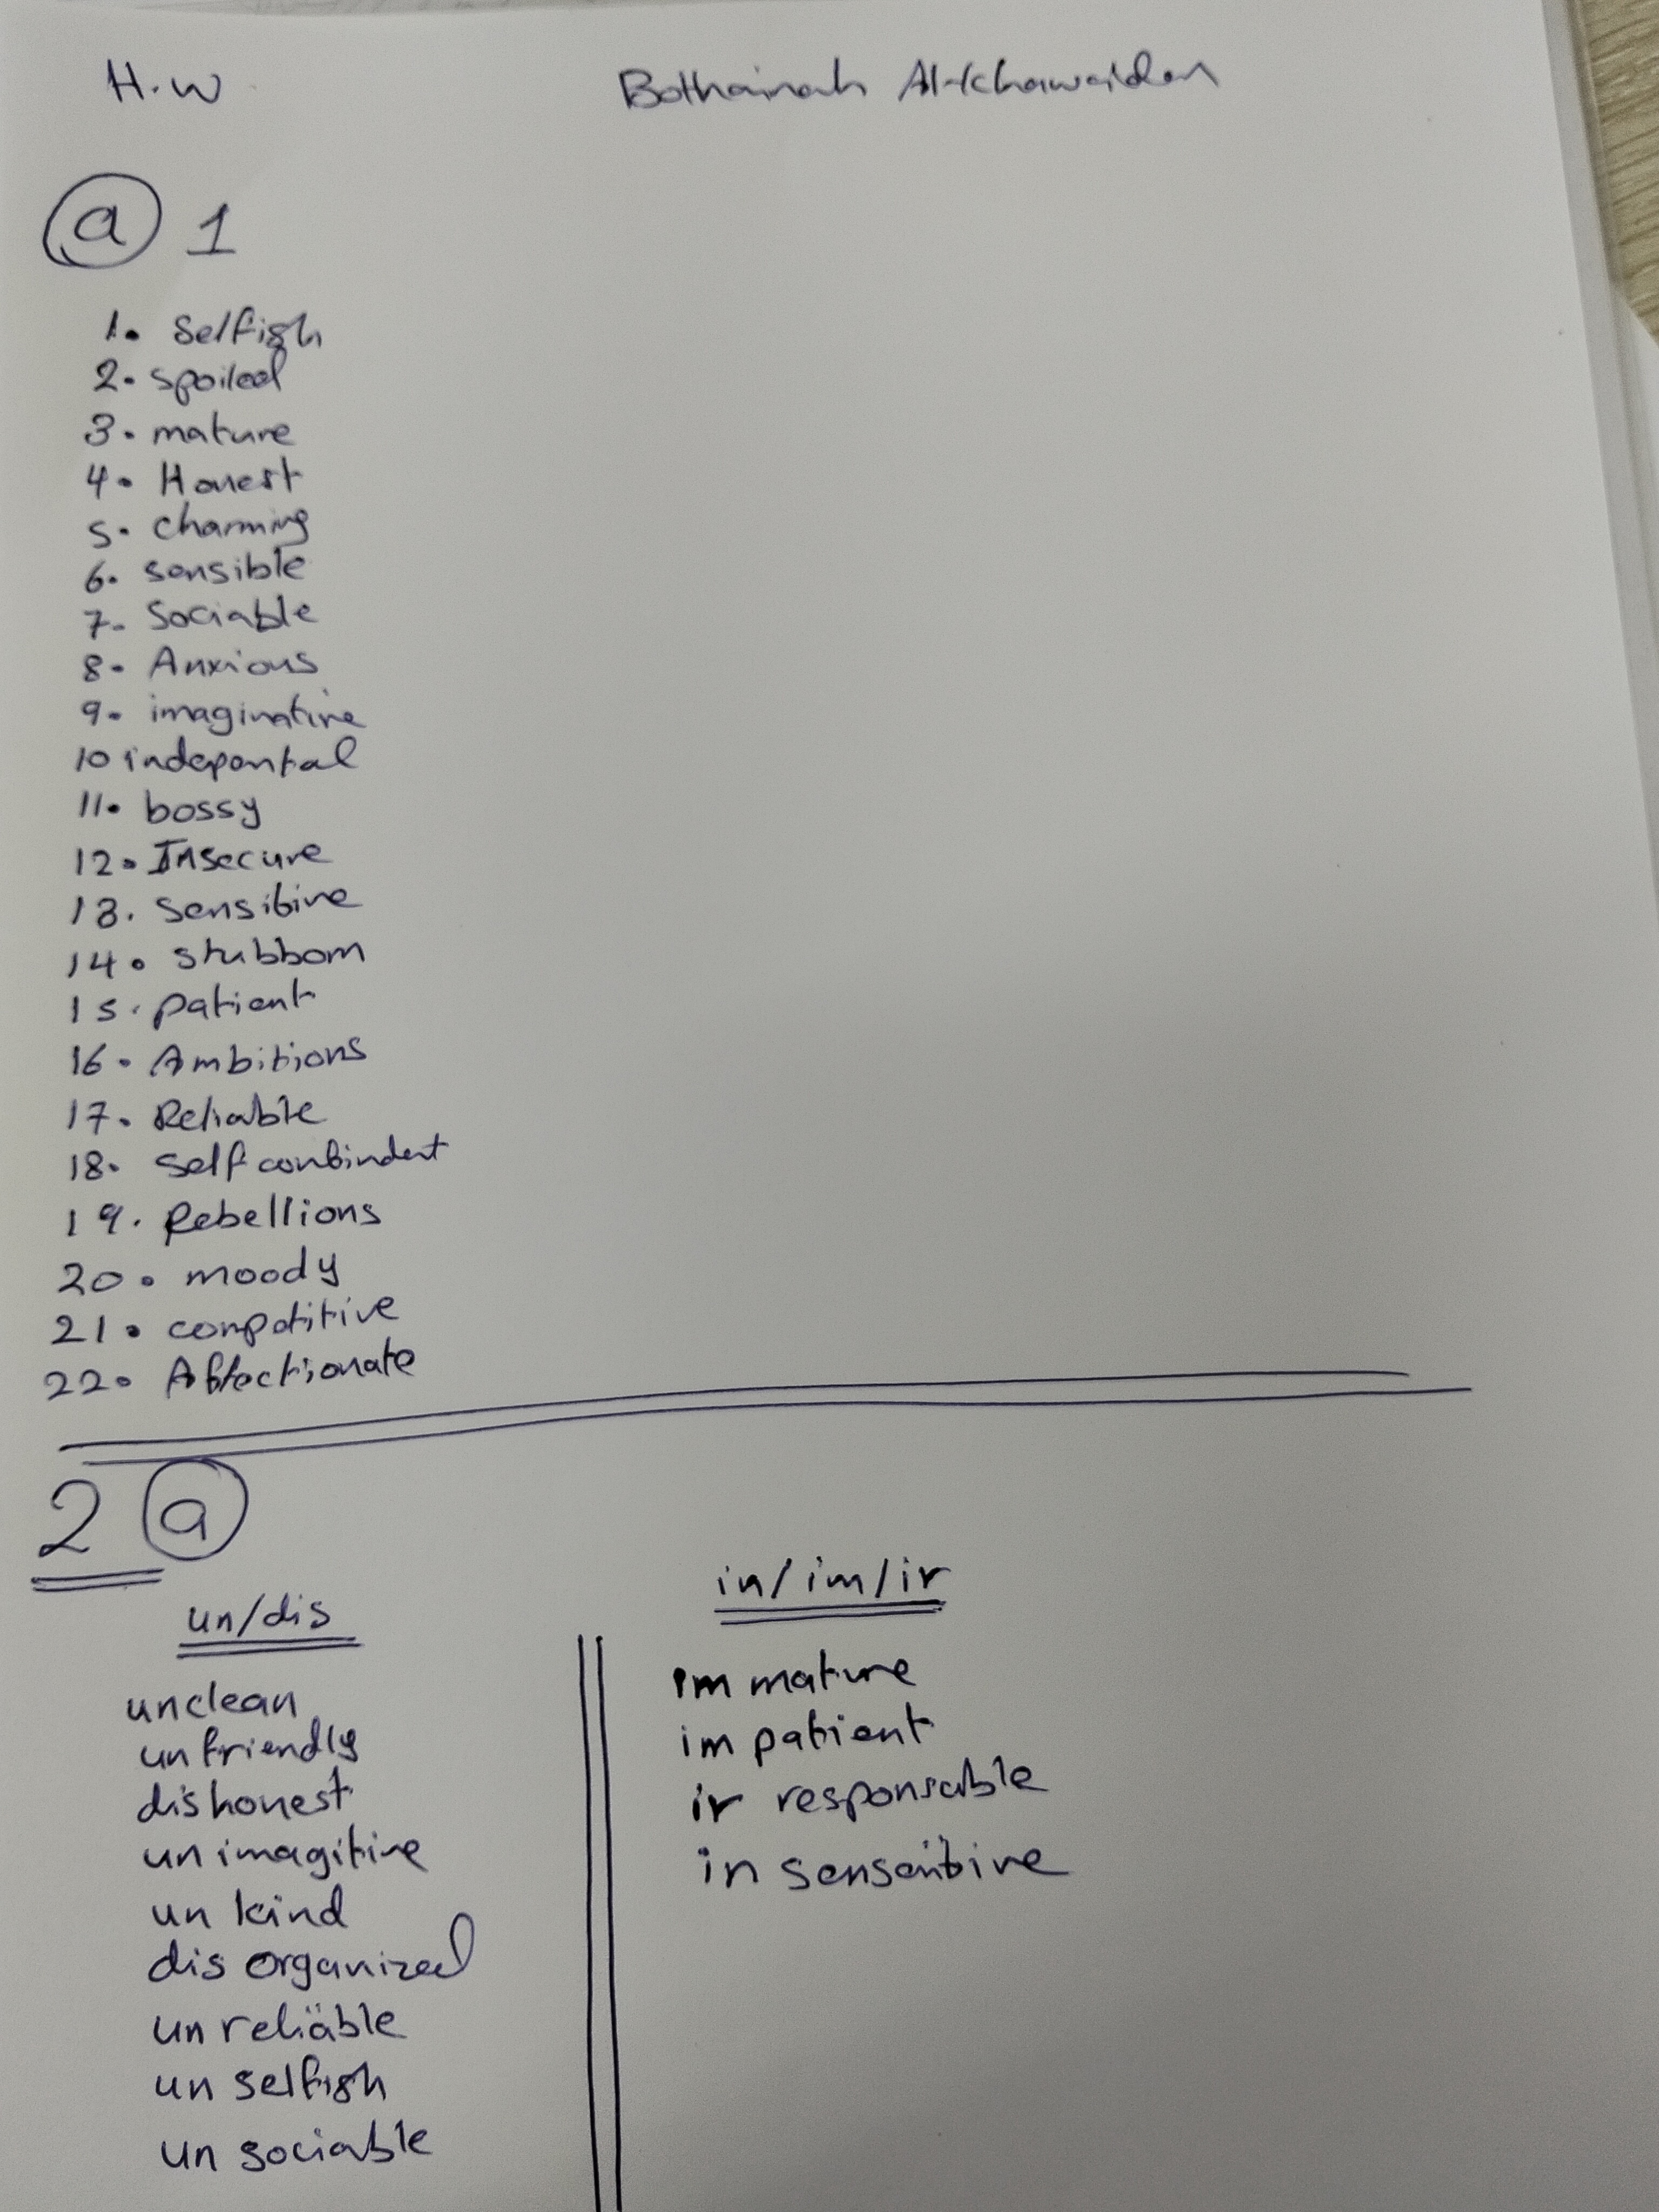 H.W
Bothainah Al-khawaldeh
a 1
1. Selfish
2. spoiled
3. mature
4. Honest
5. charming
6. sensible
7. Sociable
8. Anxious
9. imaginative
10 indepental
11. bossy
12. Insecure
13. sensitive
14. stubborn
15. patient
16. Ambitions
17. Reliable
18. self conbindent
19. Rebellions
20. moody
21. compotitive
22. Affectionate
2 a
un/dis
unclean
un friendly
dis honest
un imagitive
un kind
dis organized
un reliable
un selfish
un sociable
in/im/ir
im mature
im patient
ir responsable
in sensentive